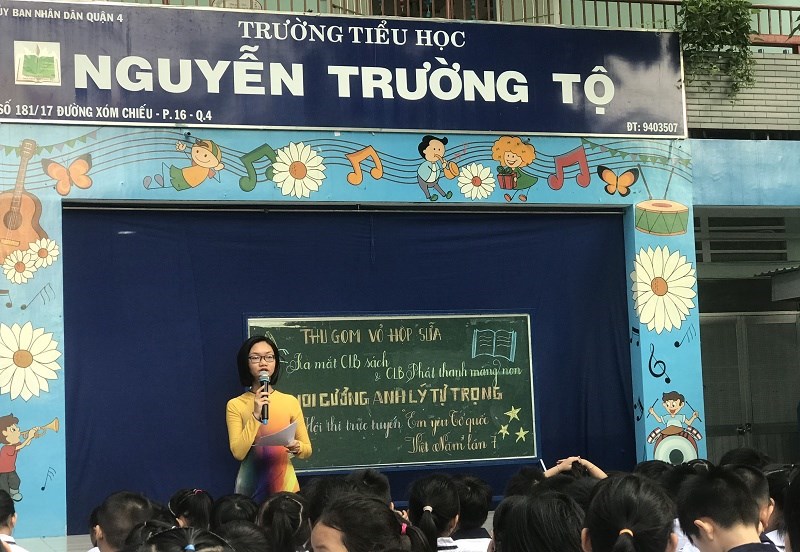 ỦY BAN NHÂN DÂN QUẬN 4
TRƯỜNG TIỂU HỌC
NGUYỄN TRƯỜNG TỘ
SỐ 181/17 ĐƯỜNG XÓM CHIẾU - P.16 - Q.4
ĐT: 9403507
THU GOM VỎ HỘP SỮA
Ra mắt CLB sách
& CLB Phát thanh măng non
NOI GƯƠNG ANH LÝ TỰ TRỌNG
Hội thi trực tuyến "Em yêu Tổ quốc
Việt Nam" lần 7